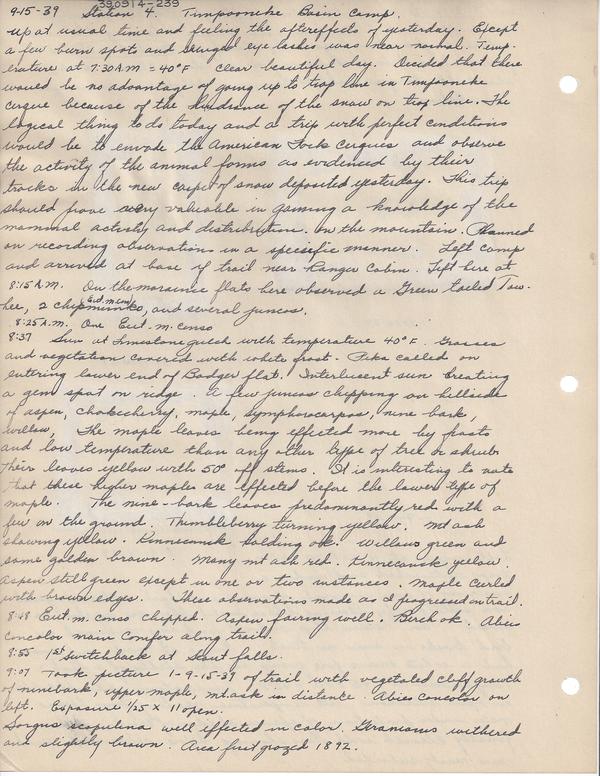 390914-239
9-15-39 Station 4. Timpooneke Basin Camp.
up at usual time and feeling the aftereffects of yesterday. Except
a few burn spots and singed eye lashes was near normal. Temp-
erature at 7:30 A.M = 40°F clear beautiful day. Decided that there
would be no advantage of going up to trap line in Timpooneke
cirque because of the hindrance of the snow on trap line. The
logical thing to do today and a trip with perfect conditions
would be to envade the American Fork Cirques and observe
the activity of the animal forms as evidenced by their
tracks in the new carpet of snow deposited yesterday. This trip
should prove very valuable in gaining a knowledge of the
mammal activity and distribution on the mountain. Planned
on recording observations in a specific manner. Left camp
and arrived at base of trail near Ranger Cabin. Left here at
8:15 A.M. On the morainic flats here observed a Green tailed Tow-
hee, 2 chipmunks, Eut. m. con and several juncos.
8:25 A.M. One Eut. m. conso
8:37 Sun at limestone gulch with temperature 40°F. Grasses
and vegetation covered with white frost. Pika called on
entering lower end of Badger flat. Interlucent sun creating
a gem spot on ridge. A few juncos chipping on hillside
of aspen, chokecherry, maple, Symphorcarpos, nine bark,
willow. The maple leaves being effected more by frosts
and low temperature than any other type of tree or shrub
their leaves yellow with 50% off stems. It is interesting to note
that these higher maples are effected before the lower type of
maple. The nine-bark leaves predominantly red with a
few on the ground. Thimbleberry turning yellow. Mt ash
showing yellow. Kinnecannick holding ok. Willows green and
some golden brown. Many mt ash red. Kinnecansk yellow.
Aspen still green except in one or two instances. Maple curled
with brown edges. These observations made as I progressed on trail.
8:48 Eut. m. conso chipped. Aspen fairing well. Birch ok. Abies
concolor main conifer along trail.
8:55 1st switchback at Scout falls.
9:07 Took picture 1-9-15-39 of trail with vegetated cliff growth
of ninebark, upper maple, mt. ash in distance. Abies concolor on
left. Exposure 1/25 x 11 open.
Sorgus scopulina well effected in color. Geraniums withered
and slightly brown. Area first grazed 1892.